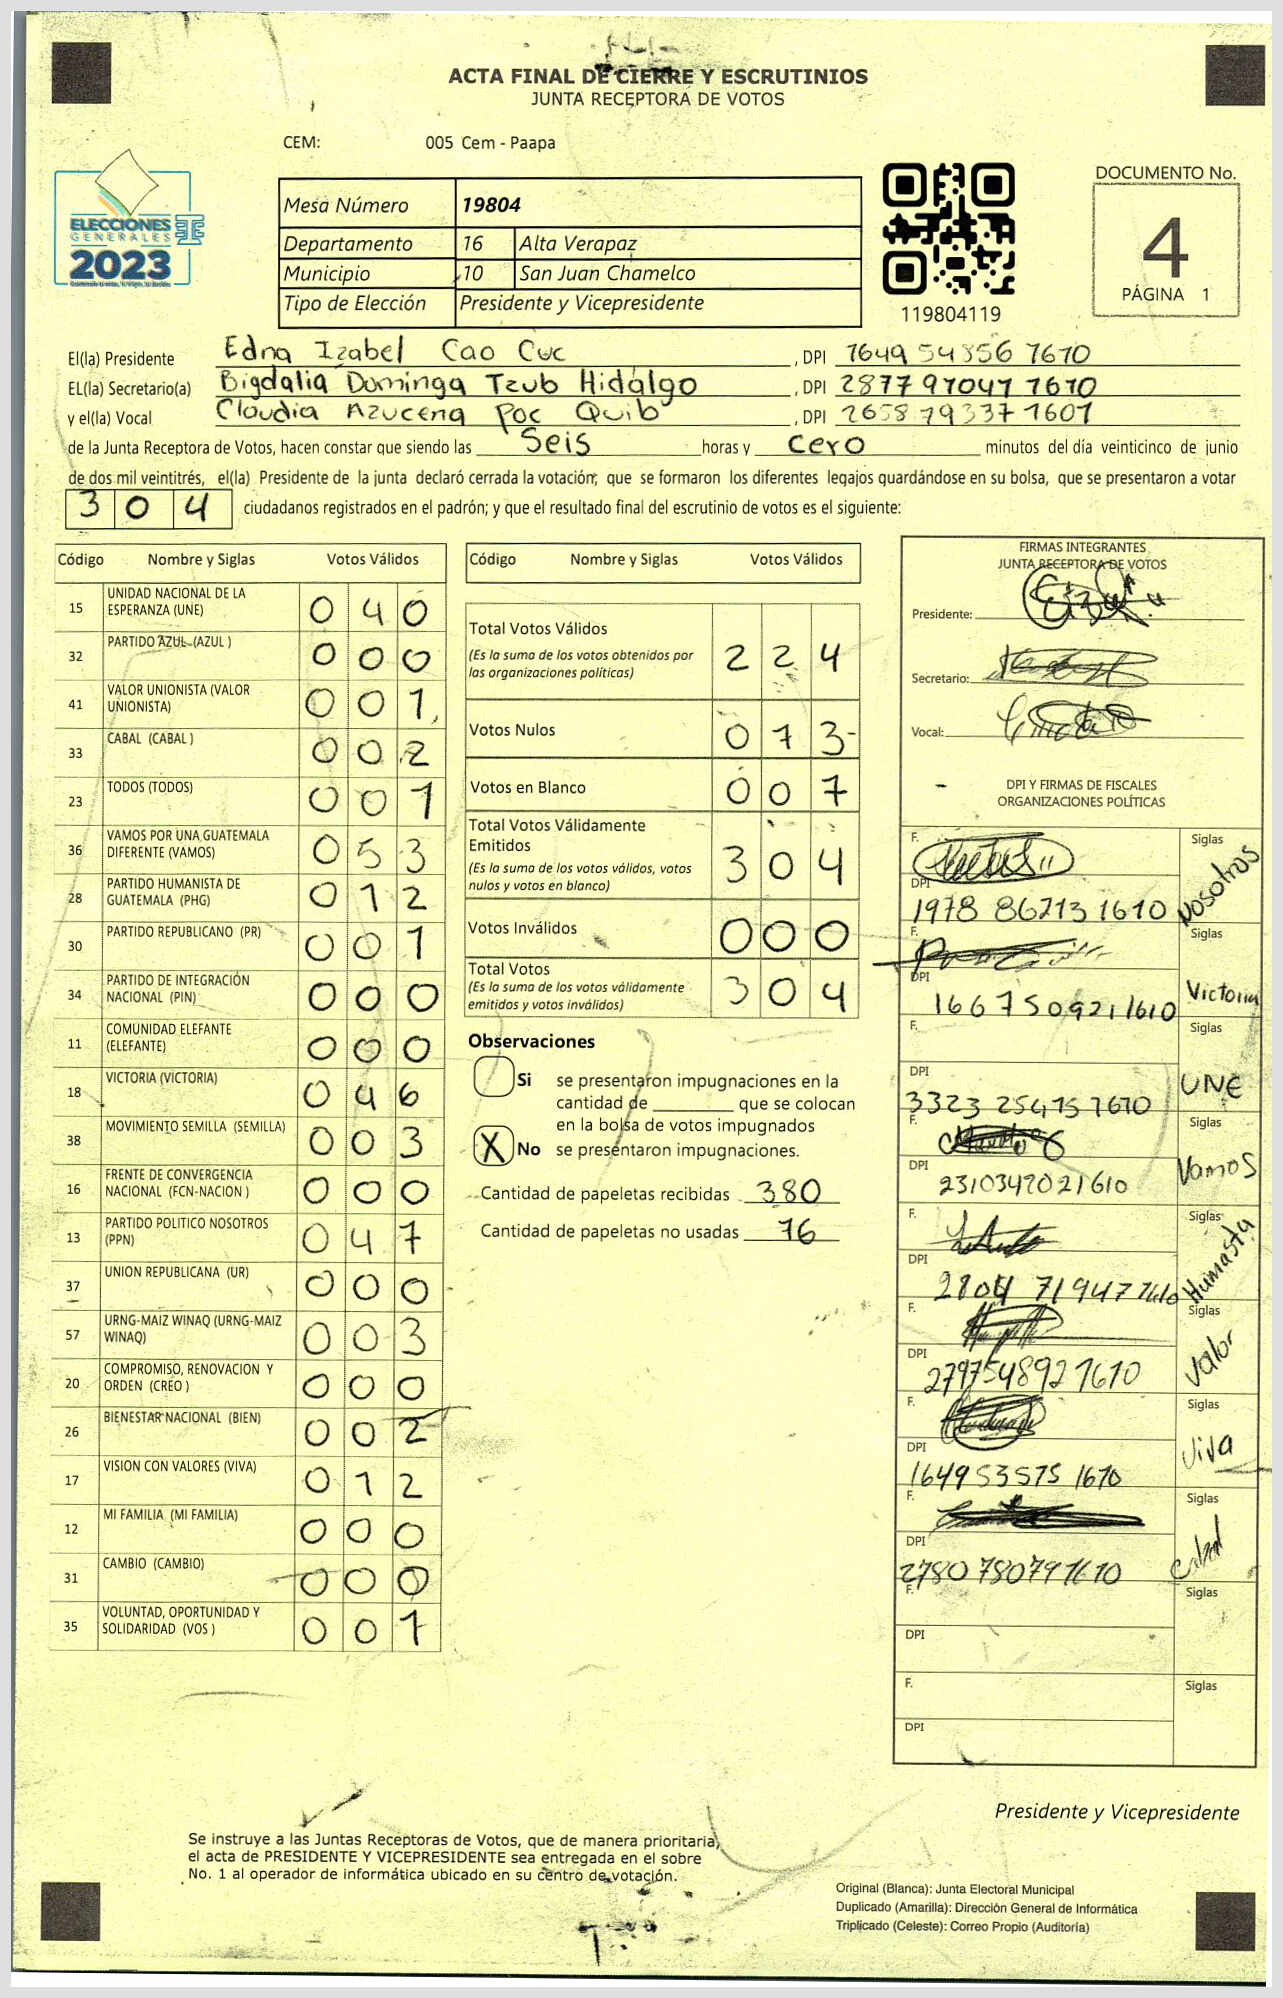 ACTA FINAL DE CIERRE Y ESCRUTINIOS
JUNTA RECEPTORA DE VOTOS
CEM: 005 Cem - Paapa
ELECCIONES
GENERALES
2023
Mesa Número 19804
Departamento 16 Alta Verapaz
Municipio 10 San Juan Chamelco
Tipo de Elección Presidente y Vicepresidente
119804119
DOCUMENTO No.
4
PÁGINA 1
El(la) Presidente Edna Izabel Cao Cuc , DPI 1649 54856 1610
EL(la) Secretario(a) Bigdalia Dominga Tzub Hidalgo , DPI 2877 97047 1610
y el(la) Vocal Claudia Azucena Poc Quib , DPI 2658 79337 1601
de la Junta Receptora de Votos, hacen constar que siendo las Seis horas y cero minutos del día veinticinco de junio
de dos mil veintitrés, el(la) Presidente de la junta declaró cerrada la votación; que se formaron los diferentes legajos guardándose en su bolsa, que se presentaron a votar
304 ciudadanos registrados en el padrón; y que el resultado final del escrutinio de votos es el siguiente:
Código Nombre y Siglas Votos Válidos
15 UNIDAD NACIONAL DE LA ESPERANZA (UNE) 0 4 0
32 PARTIDO AZUL (AZUL ) 0 0 0
41 VALOR UNIONISTA (VALOR UNIONISTA) 0 0 1
33 CABAL (CABAL ) 0 0 2
23 TODOS (TODOS) 0 0 1
36 VAMOS POR UNA GUATEMALA DIFERENTE (VAMOS) 0 5 3
28 PARTIDO HUMANISTA DE GUATEMALA (PHG) 0 1 2
30 PARTIDO REPUBLICANO (PR) 0 0 1
34 PARTIDO DE INTEGRACIÓN NACIONAL (PIN) 0 0 0
11 COMUNIDAD ELEFANTE (ELEFANTE) 0 0 0
18 VICTORIA (VICTORIA) 0 4 6
38 MOVIMIENTO SEMILLA (SEMILLA) 0 0 3
16 FRENTE DE CONVERGENCIA NACIONAL (FCN-NACION ) 0 0 0
13 PARTIDO POLITICO NOSOTROS (PPN) 0 4 7
37 UNION REPUBLICANA (UR) 0 0 0
57 URNG-MAIZ WINAQ (URNG-MAIZ WINAQ) 0 0 3
20 COMPROMISO, RENOVACION Y ORDEN (CREO ) 0 0 0
26 BIENESTAR NACIONAL (BIEN) 0 0 2
17 VISION CON VALORES (VIVA) 0 1 2
12 MI FAMILIA (MI FAMILIA) 0 0 0
31 CAMBIO (CAMBIO) 0 0 0
35 VOLUNTAD, OPORTUNIDAD Y SOLIDARIDAD (VOS ) 0 0 1
Código Nombre y Siglas Votos Válidos
Total Votos Válidos 2 2 4
(Es la suma de los votos obtenidos por
las organizaciones políticas)
Votos Nulos 0 7 3
Votos en Blanco 0 0 7
Total Votos Válidamente
Emitidos 3 0 4
(Es la suma de los votos válidos, votos
nulos y votos en blanco)
Votos Inválidos 0 0 0
Total Votos 3 0 4
(Es la suma de los votos válidamente
emitidos y votos inválidos)
Observaciones
Si se presentaron impugnaciones en la
cantidad de ________ que se colocan
en la bolsa de votos impugnados
X No se presentaron impugnaciones.
Cantidad de papeletas recibidas 380
Cantidad de papeletas no usadas 76
FIRMAS INTEGRANTES
JUNTA RECEPTORA DE VOTOS
Presidente:
Secretario:
Vocal:
DPI Y FIRMAS DE FISCALES
ORGANIZACIONES POLÍTICAS
F. Siglas Nosotros
DPI 1978 86213 1610
F. Siglas Victoria
DPI 1667509211610
F. Siglas UNE
DPI 3323 25475 1610
F. Siglas Vamos
DPI 2310347021610
F. Siglas Humasta
DPI 2804 71947 1610
F. Siglas Valor
DPI 279754892 1610
F. Siglas Viva
DPI 164953575 1610
F. Siglas Cabal
DPI 2780 78079 1610
F. Siglas
DPI
F. Siglas
DPI
Presidente y Vicepresidente
Se instruye a las Juntas Receptoras de Votos, que de manera prioritaria,
el acta de PRESIDENTE Y VICEPRESIDENTE sea entregada en el sobre
No. 1 al operador de informática ubicado en su centro de votación.
Original (Blanca): Junta Electoral Municipal
Duplicado (Amarilla): Dirección General de Informática
Triplicado (Celeste): Correo Propio (Auditoría)